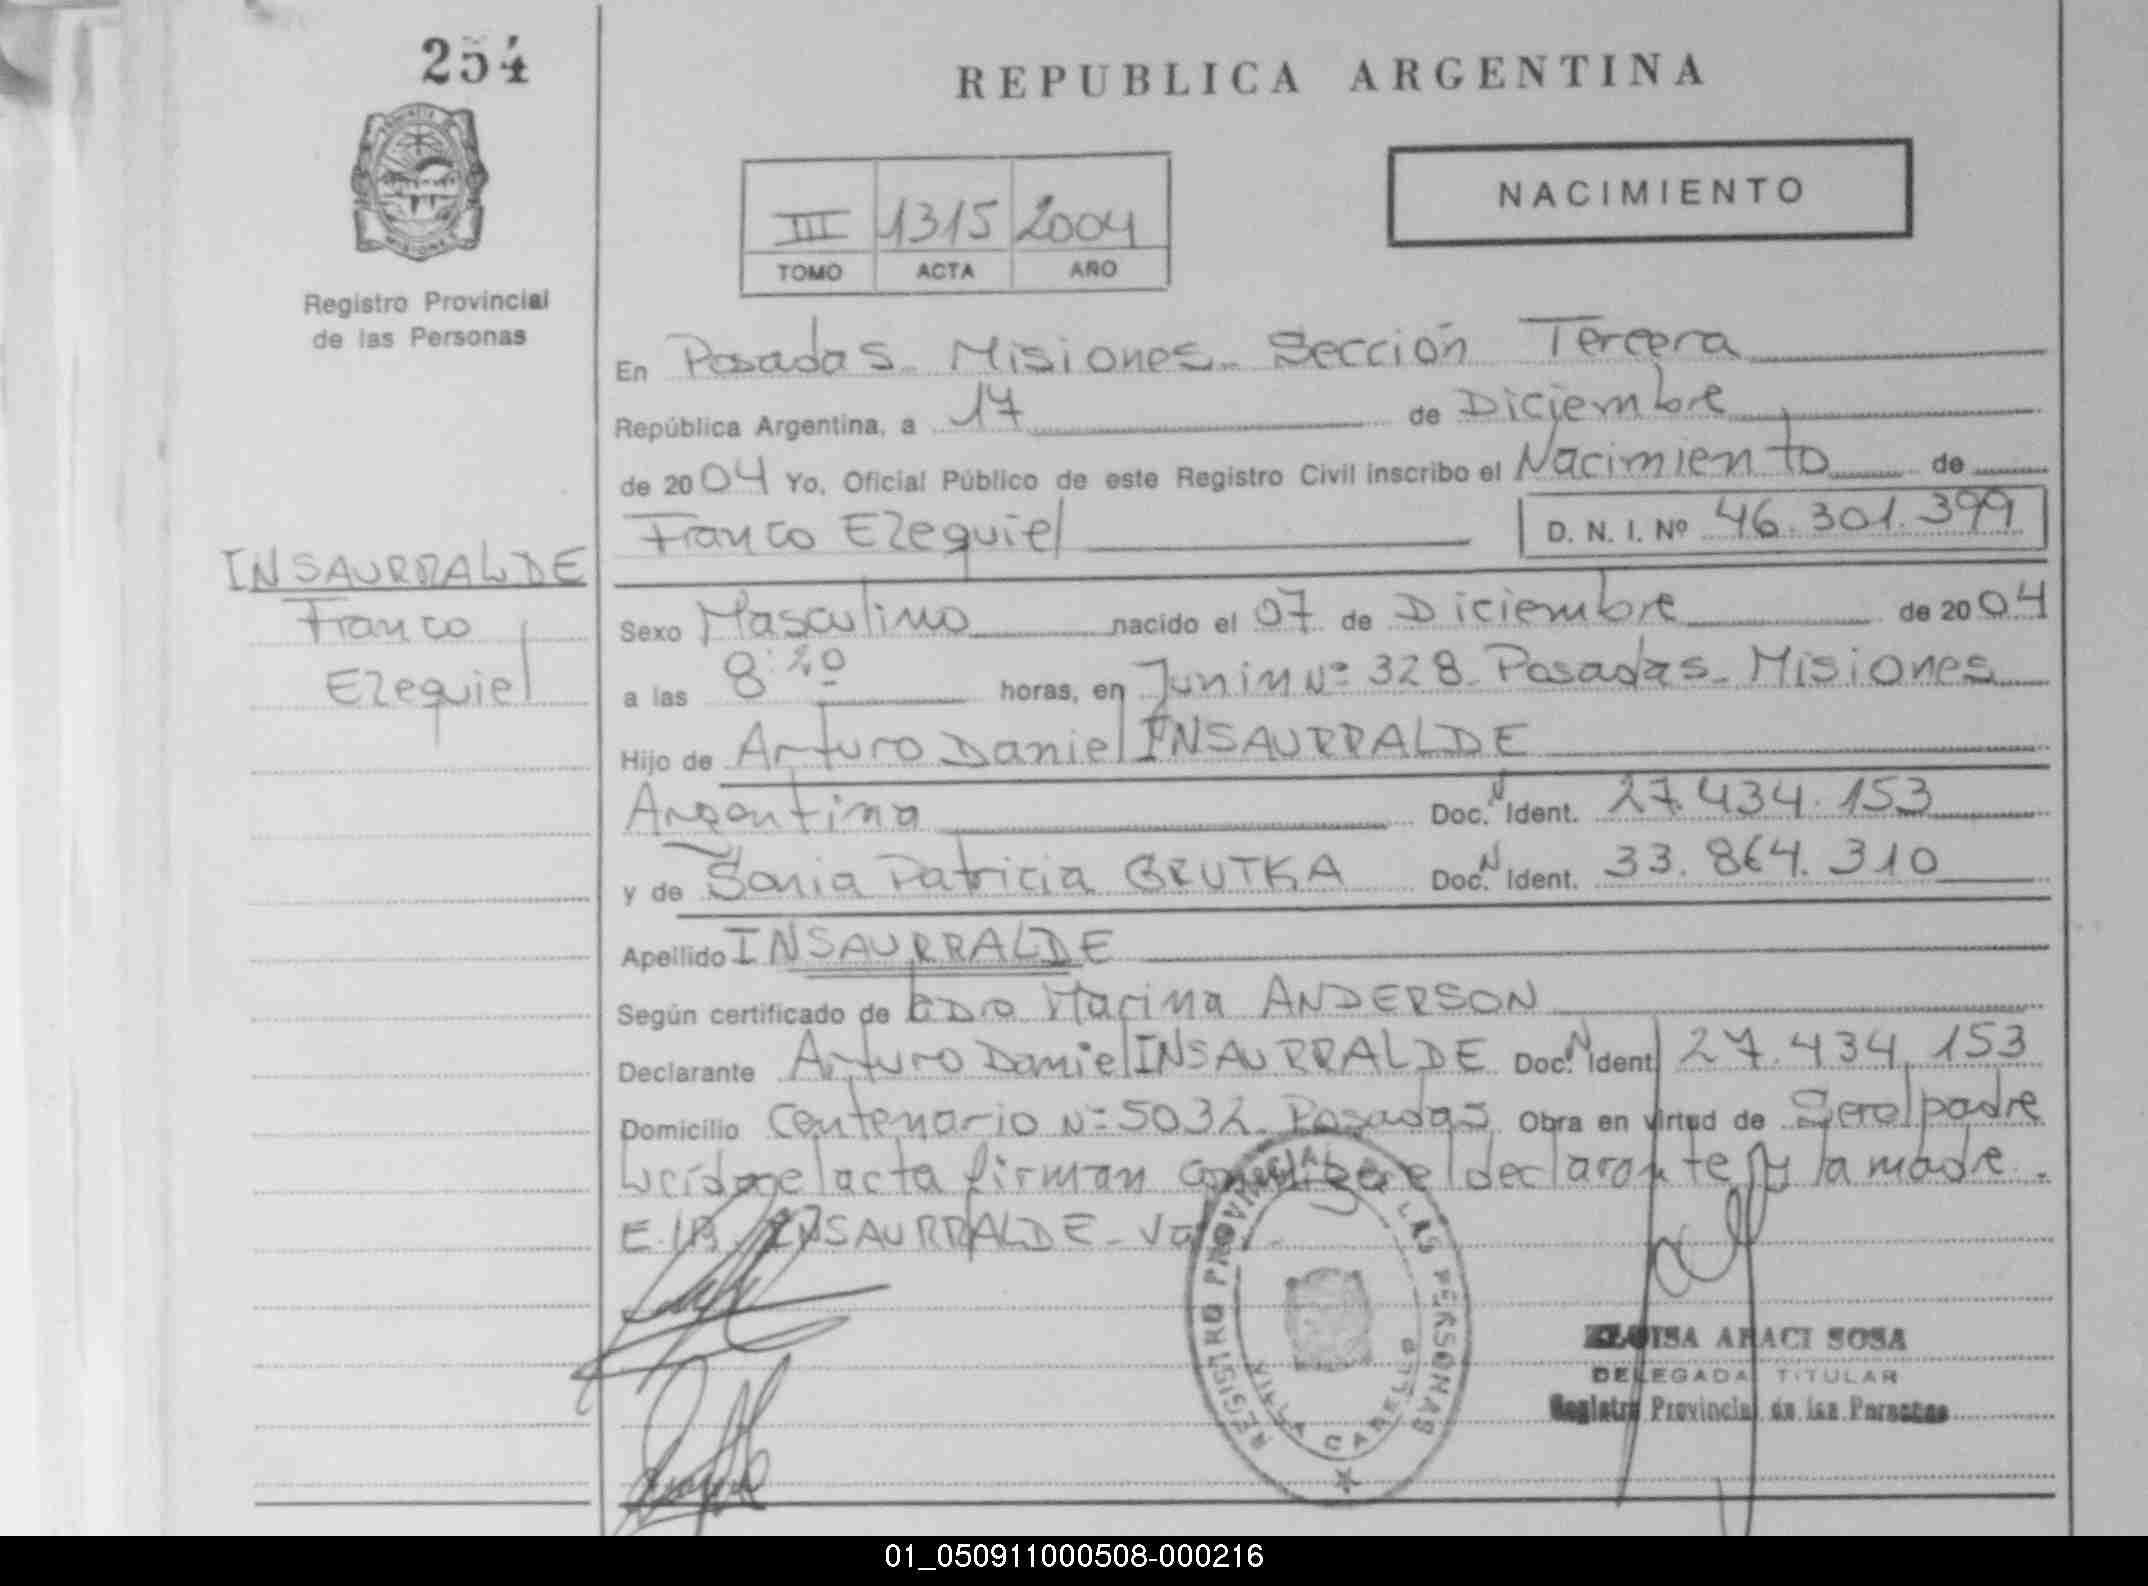 254
REPUBLICA ARGENTINA
NACIMIENTO
III 1315 2004
TOMO ACTA AÑO
Registro Provincial
de las Personas
En Posadas - Misiones - Sección Tercera
República Argentina, a 17 de Diciembre
de 2004 Yo, Oficial Público de este Registro Civil inscribo el Nacimiento de
Franco Ezequiel D. N. I. Nº 46.301.399
INSAURRALDE
Franco
Ezequiel
Sexo Masculino nacido el 07 de Diciembre de 2004
a las 8:20 horas, en Junin Nº 328 - Posadas - Misiones
Hijo de Arturo Daniel INSAURRALDE
Argentina Doc. N Ident. 27.434.153
y de Sonia Patricia BRUTKA Doc. N Ident. 33.864.310
Apellido INSAURRALDE
Según certificado de Marina ANDERSON
Declarante Arturo Daniel INSAURRALDE Doc. N Ident 27.434.153
Domicilio Centenario Nº 5032 - Posadas Obra en virtud de Ser el padre
el acta firman el declarante y la madre.
INSAURRALDE -
REGISTRO PROVINCIAL DE LAS PERSONAS
VILLA CABELLO
ELOISA ARACI SOSA
DELEGADA TITULAR
Registro Provincial de las Personas
01_050911000508-000216